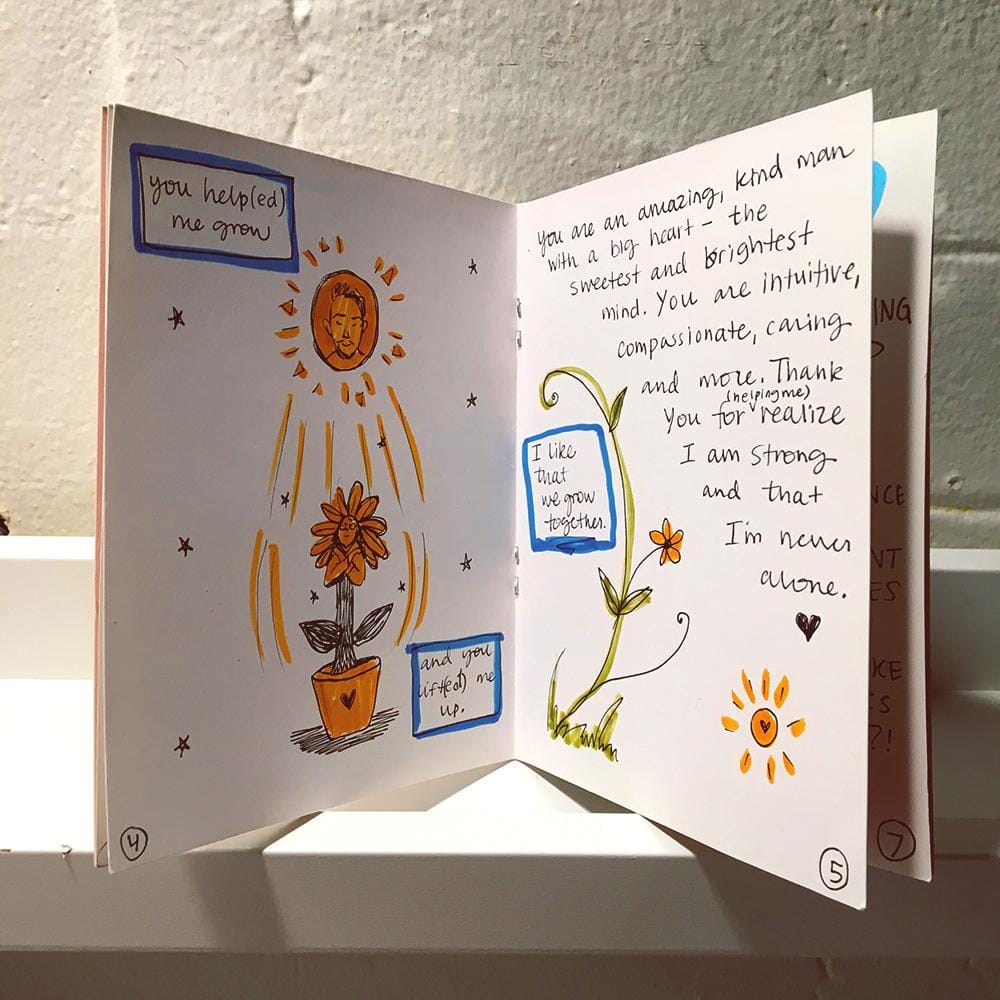 you help(ed)
me grow
and you
lift(ed) me
up.
4
you are an amazing, kind man
with a big heart – the
sweetest and brightest
mind. You are intuitive,
compassionate, caring
and more. Thank
you for (helping me) realize
I am strong
and that
I'm never
alone.
I like
that
we grow
together.
5
ING
NCE
NT
ES
KE
S
?!
7